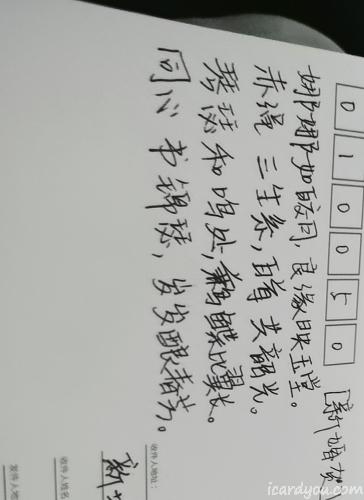 010050
[新婚贺
如皎月,良缘映玉堂。
赤绳三生系,共韶光。
琴瑟和鸣处,鹣鲽比翼长。
同心书锦瑟,岁岁酿春芳。
收件人地址:
新
收件人姓名
发件人地
icardyou.com